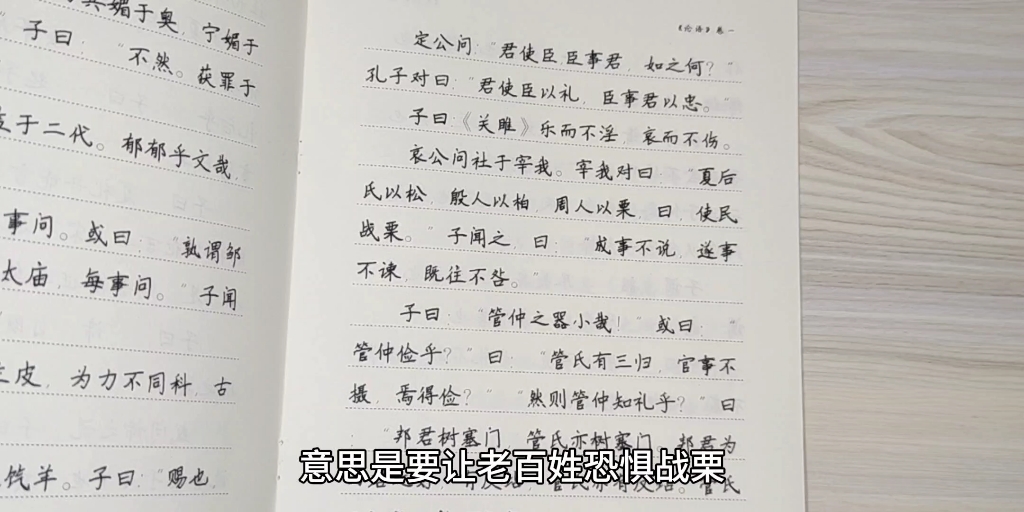 媚于奥,宁媚于
子曰:“不然。获罪于
于二代。郁郁乎文哉
事问。或曰:“孰谓邹
太庙,每事问。”子闻
皮,为力不同科,古
饩羊。子曰:“赐也,
《论语》卷一
定公问:“君使臣,臣事君,如之何?”
孔子对曰:“君使臣以礼,臣事君以忠。”
子曰:《关雎》乐而不淫,哀而不伤。
哀公问社于宰我。宰我对曰:“夏后
氏以松,殷人以柏,周人以栗,曰,使民
战栗。”子闻之,曰:“成事不说,遂事
不谏,既往不咎。”
子曰:“管仲之器小哉!”或曰:“
管仲俭乎?”曰:“管氏有三归,官事不
摄,焉得俭?”“然则管仲知礼乎?”曰
:“邦君树塞门,管氏亦树塞门。邦君为
管氏
意思是要让老百姓恐惧战栗